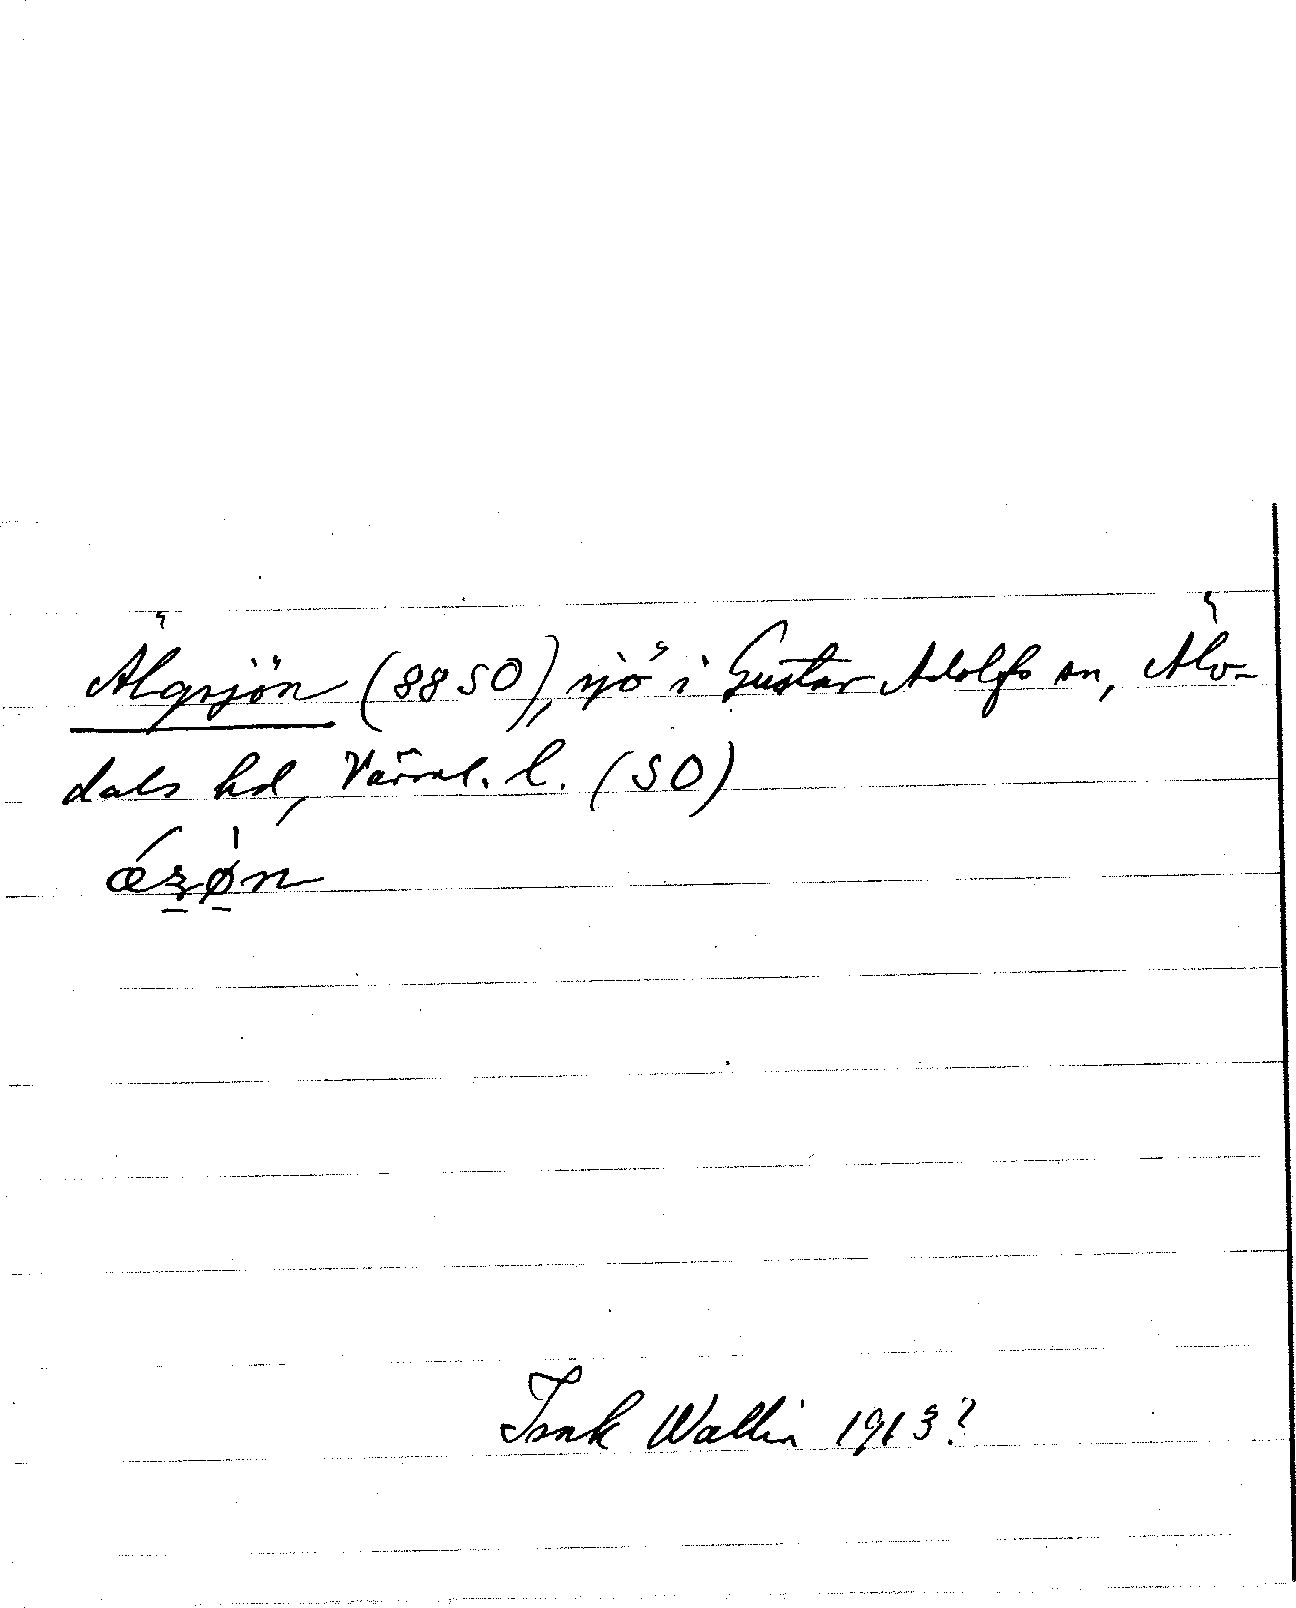 Älgsjön (88 SO), sjö i Gustav Adolfs sn, Älv-
dals hd, Värml. l. (SO)
Isak Wallin 1913?